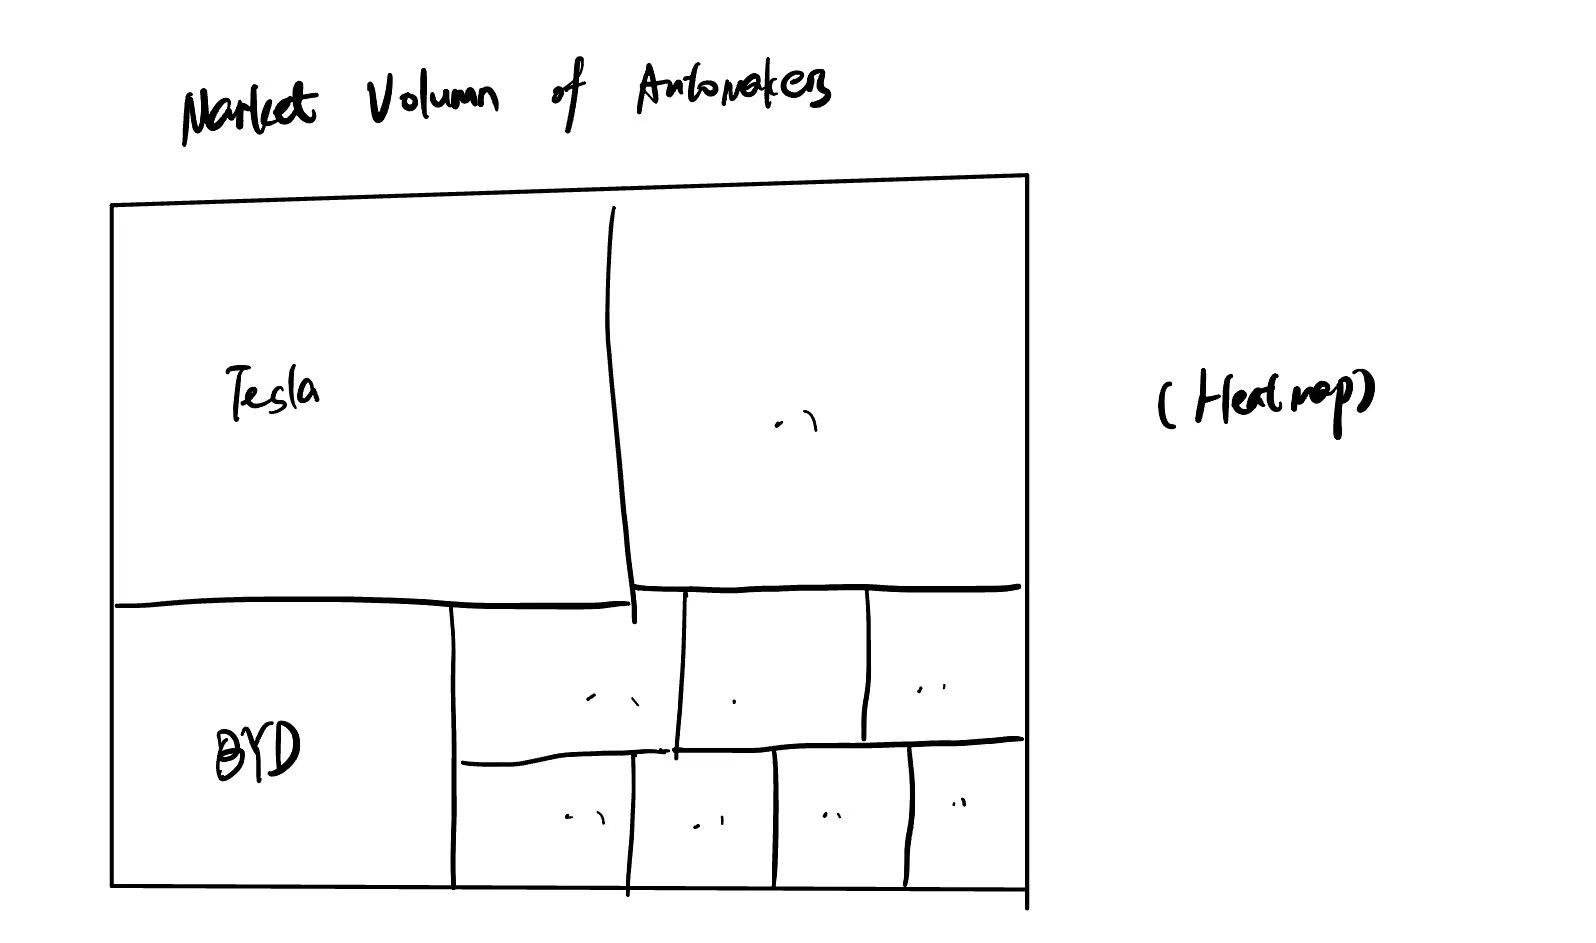 Market Volumn of Automakers
Tesla
(Heatmap)
BYD